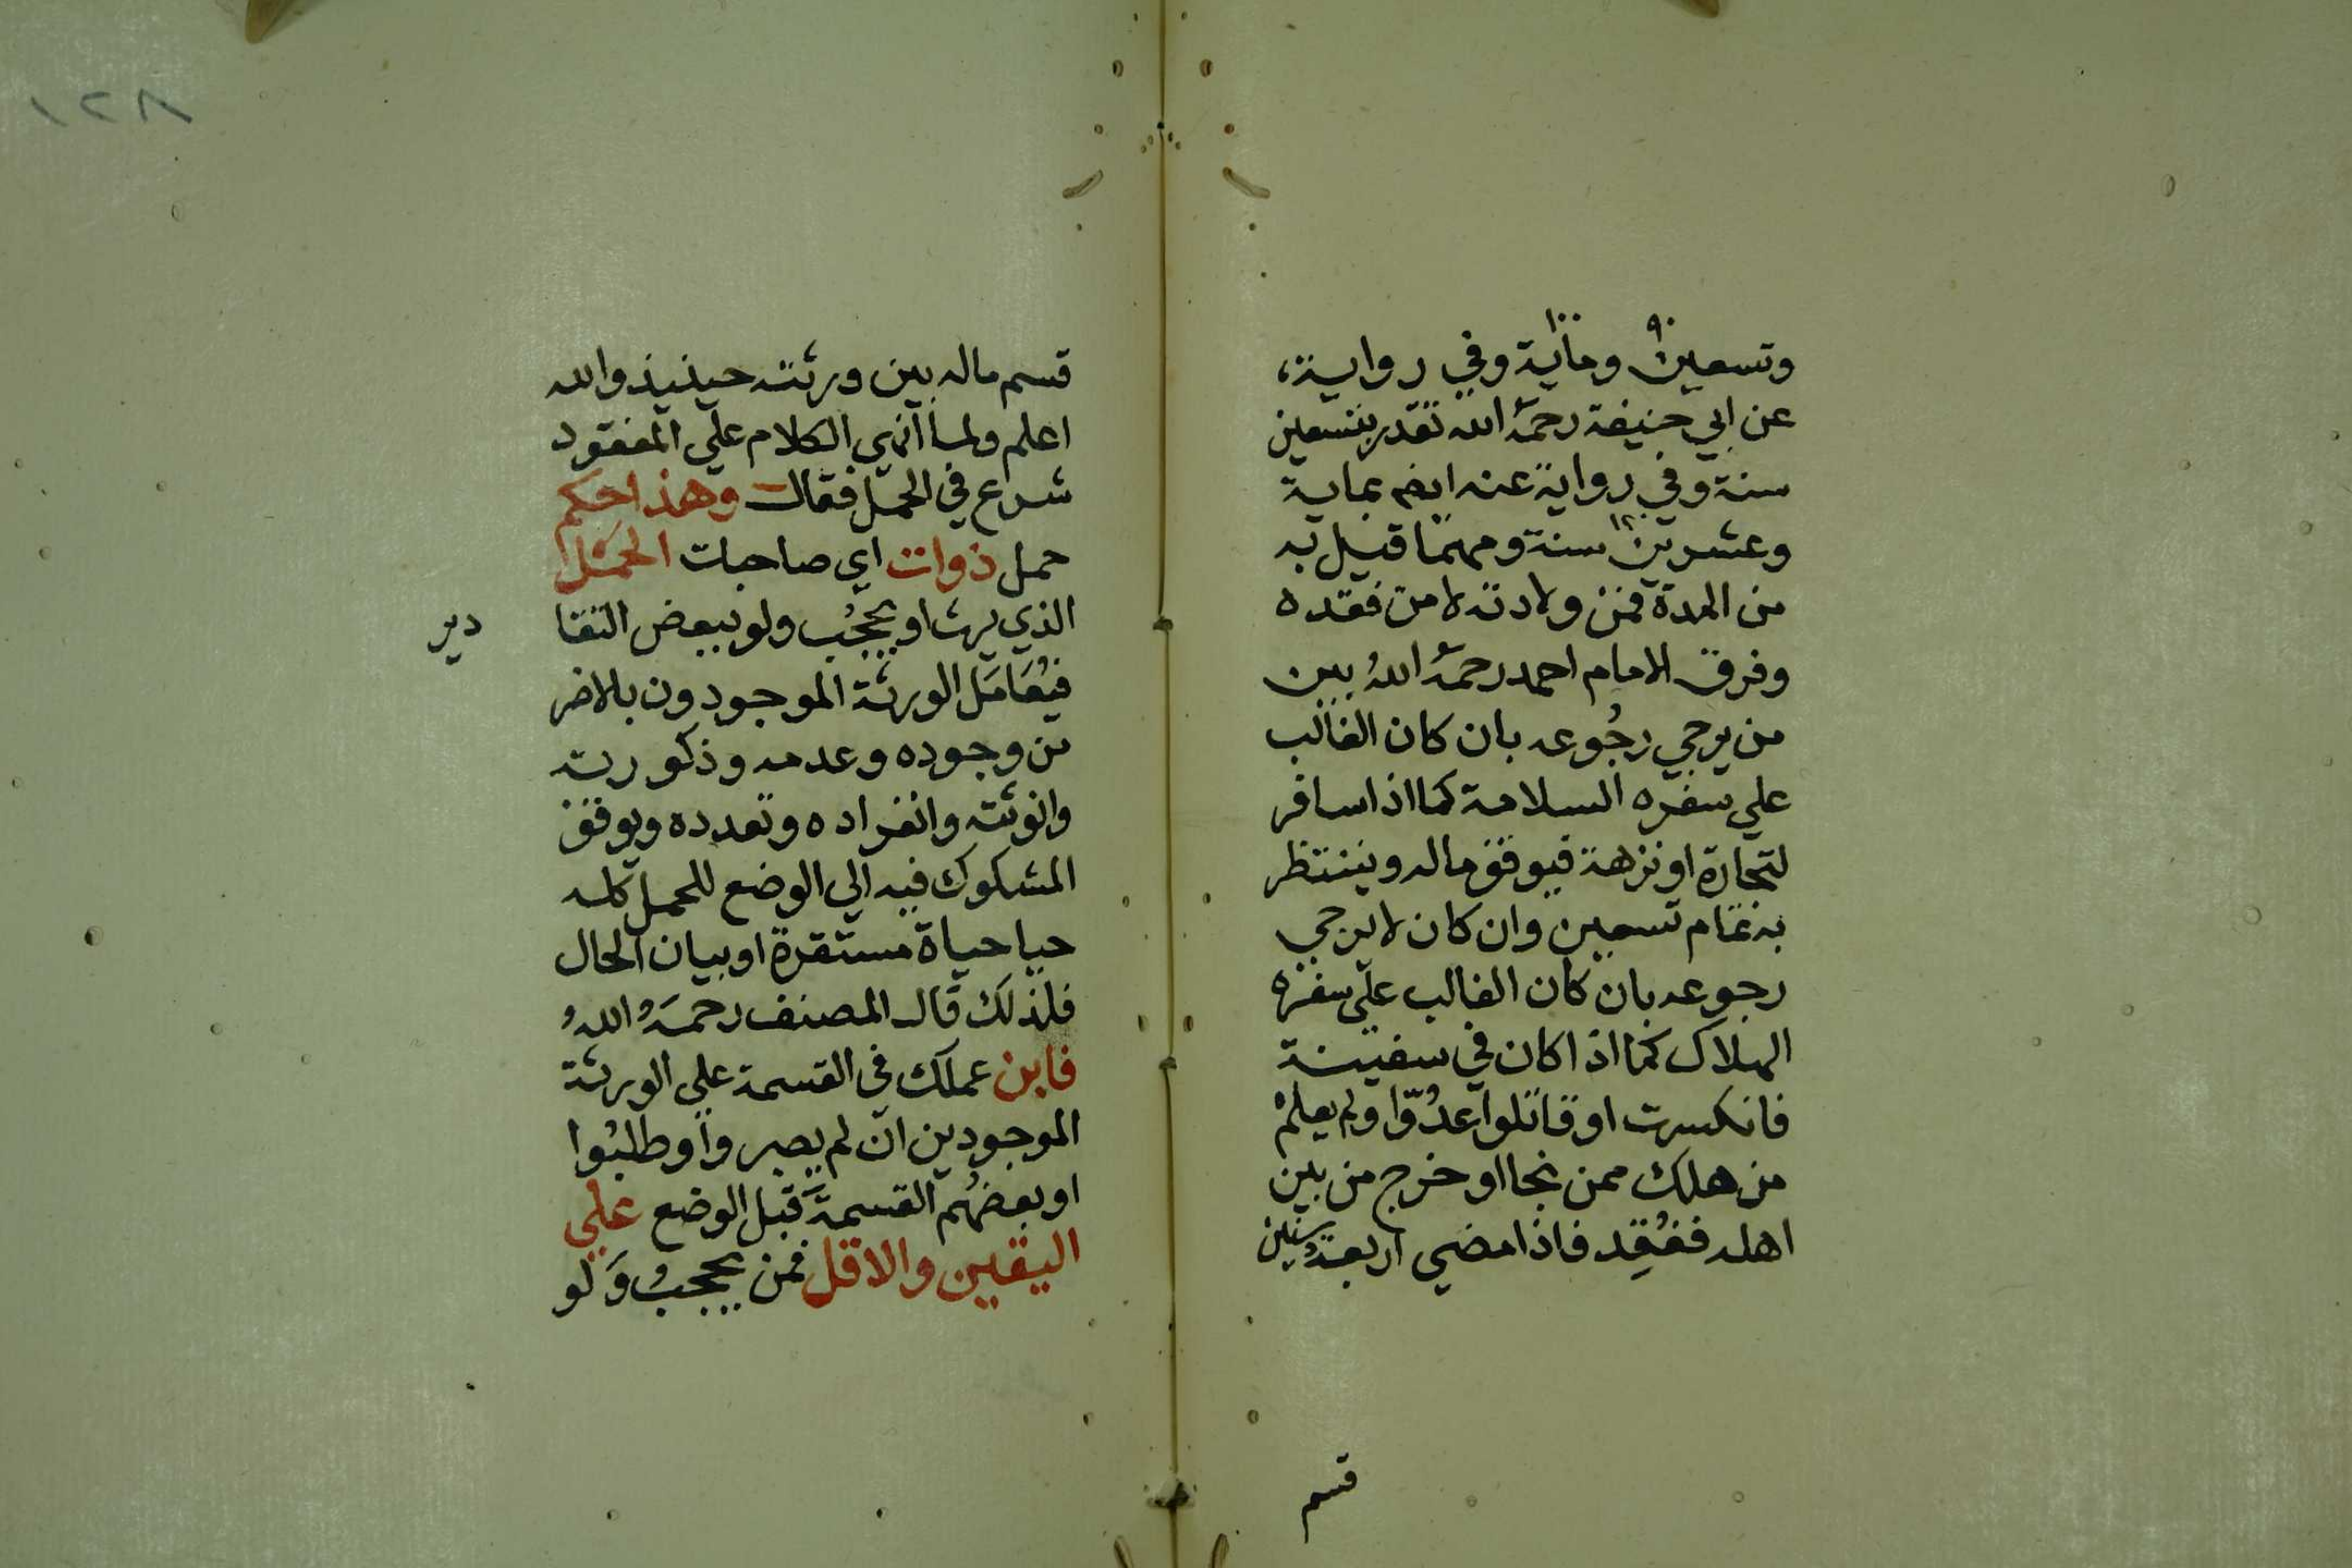 ٩٠ ١٠٠
وتسعين وماية وفي رواية،
عن ابي حنيفة رحمهُ الله تقدر بتسعين
سنة وفي رواية عنه ايضم بماية
١٢٠
وعشرين سنة ومهما قيل به
من المدة فمن ولادته لا من فقده
وفرق الامام احمد رحمهُ اللهُ بين
من يرجي رجُوعه بان كان الغالب
علي سفره السلامة كما اذا سافر
لتجارة او نزهة فيوقف ماله وينتظر
به تمام تسعين وان كان لا يرجي
رجوعه بان كان الغالب علي سفره
الهلاك كما اذا كان في سفينة
فانكسرت او قاتلوا عدُوّا ولم يعلم
من هلك ممن نجا او خرج من بين
اهله ففُقِد فاذا مضي اربعةُ سنين
قسم
١٢٨
قسم ماله بين ورثته حينيذ والله
اعلم ولما انهي الكلام علي المفقود
شرع في الحمل فقال وهذا حكم
حمل ذوات اي صاحبات الحَمْل
الذي يرث او يحجُب ولو ببعض التقا
دير
فيُعَامَل الورثة الموجودون بالاضر
من وجوده وعدمه وذكوريته
وانوثته وانفراده وتعدده ويوقف
المشكوك فيه الي الوضع للحمل كله
حيا حياة مستقرة او بيان الحال
فلذلك قال المصنف رحمَهُ اللهُ
فابن عملك في القسمة علي الورثة
الموجودين ان لم يصبروا وطلبُوا
او بعضُهم القسمةَ قبل الوضع علي
اليقين والاقل فمن يحجبُ وَلو